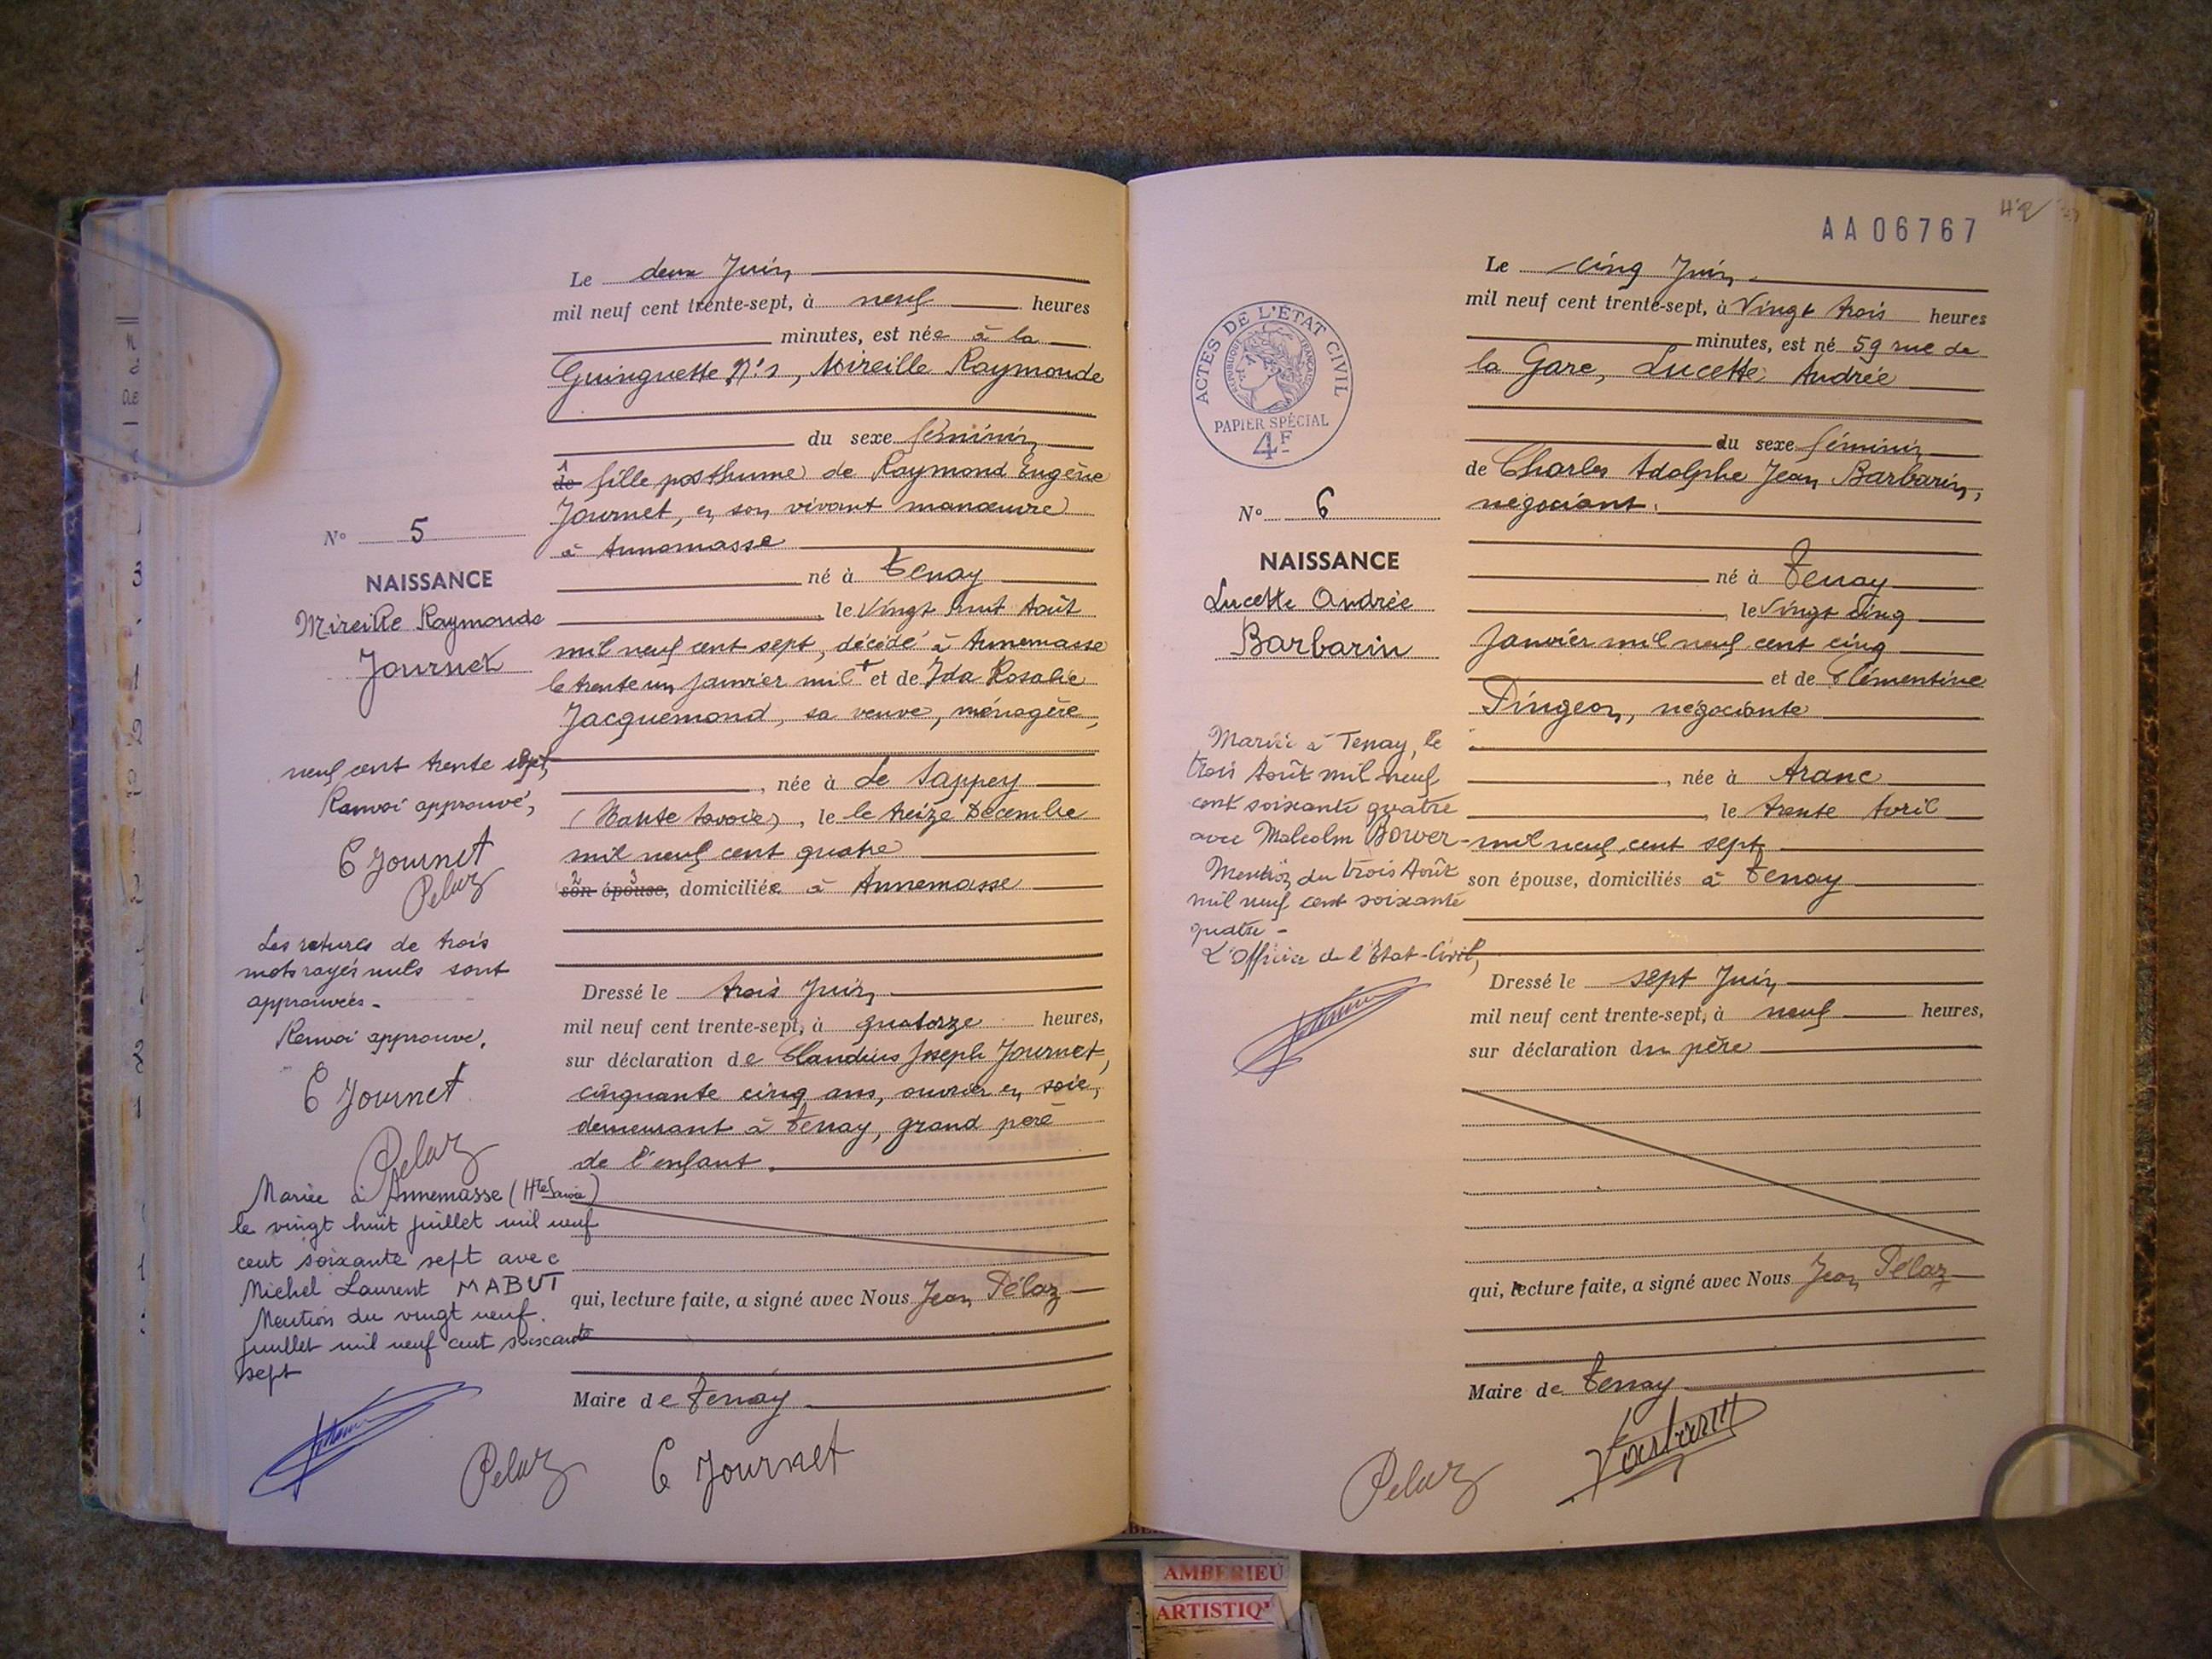 Le deux Juin
mil neuf cent trente-sept, à neuf heures
minutes, est née à la
Guinguette N°1, Mireille Raymonde
du sexe féminin
de fille posthume de Raymond Eugène
Journet, en son vivant manœuvre
à Annemasse
né à Tenay
, le Vingt huit Août
mil neuf cent sept, décédé à Annemasse
le trente un Janvier mil + et de Ida Rosalie
Jacquemond, sa veuve, ménagère,
, née à Le Sappey
(Haute Savoie), le le treize Décembre
mil neuf cent quatre
son épouse, domiciliée à Annemasse
Dressé le trois Juin
mil neuf cent trente-sept, à quatorze heures,
sur déclaration de Claudius Joseph Journet,
cinquante cinq ans, ouvrier en soie,
demeurant à Tenay, grand père
de l'enfant.
qui, lecture faite, a signé avec Nous Jean Pélaz
Maire de Tenay
Pelaz C Journet
N° 5
NAISSANCE
Mireille Raymonde
Journet
neuf cent trente sept,
Renvoi approuvé,
C Journet
Pelaz
Les ratures de trois
mots rayés nuls sont
approuvées -
Renvoi approuvé,
C Journet
Pelaz
Mariée à Annemasse (Hte Savoie)
le vingt huit juillet mil neuf
cent soixante sept avec
Michel Laurent MABUT
Mention du vingt neuf
juillet mil neuf cent soixante
sept
AA06767
ACTES DE L'ÉTAT CIVIL
RÉPUBLIQUE FRANÇAISE
PAPIER SPÉCIAL
4F
N° 6
NAISSANCE
Lucette Andrée
Barbarin
Mariée à Tenay, le
trois Août mil neuf
cent soixante quatre
avec Malcolm Bower -
Mention du trois Août
mil neuf cent soixante
quatre -
L'Officier de l'Etat-Civil,
Le cinq Juin
mil neuf cent trente-sept, à Vingt trois heures
minutes, est né 59 rue de
la Gare, Lucette Andrée
du sexe féminin
de Charles Adolphe Jean Barbarin,
négociant.
né à Tenay
, le Vingt cinq
Janvier mil neuf cent cinq
et de Clémentine
Pingeon, négociante
, née à Aranc
, le trente Avril
mil neuf cent sept
son épouse, domiciliés à Tenay
Dressé le sept Juin
mil neuf cent trente-sept, à neuf heures,
sur déclaration du père
qui, lecture faite, a signé avec Nous Jean Pélaz
Maire de Tenay
Pelaz Barbarin
AMBERIEU
ARTISTIQ'